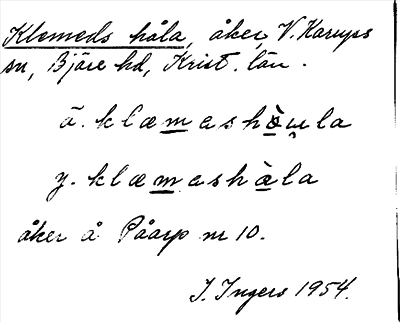 Klemeds håla, åker, V. Karups
sn, Bjäre hd, Krist. län.
ä. klæmashòu̯la
y. klæmashàla
åker å Påarp nr 10.
I. Ingers 1954.